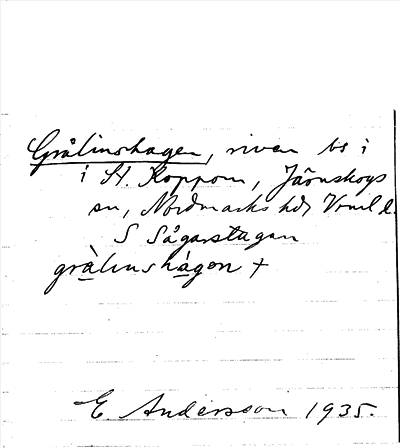 Grålinshagen, riven bs i
i St. Koppom, Järnskogs
sn, Nordmarks hd, Vrml d.
S Sågarstugan
gràlinshágen +
E Andersson 1935.